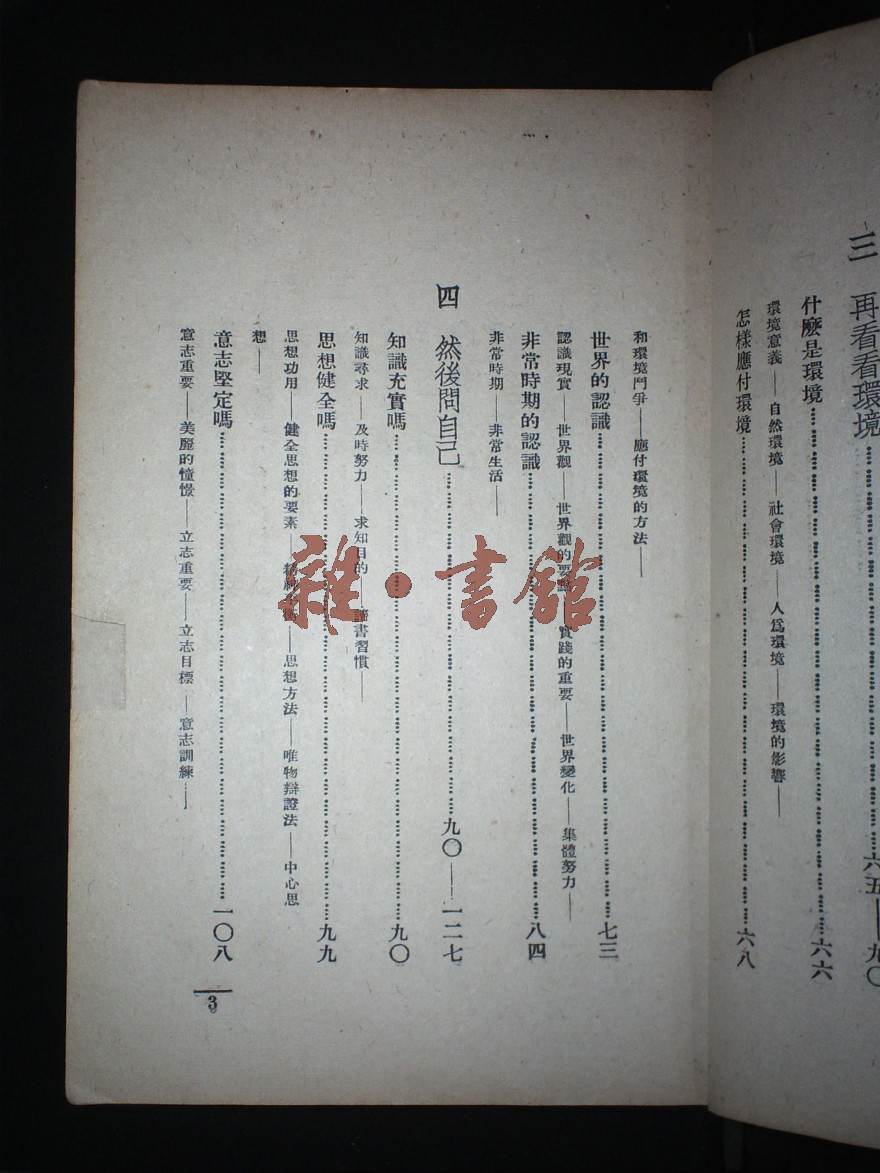 三　再看看環境……六五——九〇
什麼是環境……六六
環境意義——自然環境——社會環境——人爲環境——環境的影響——
怎樣應付環境……六八
和環境鬥爭——應付環境的方法——
世界的認識……七三
認識現實——世界觀——世界觀的要點——實踐的重要——世界變化——集體努力——
非常時期的認識……八四
非常時期——非常生活——
四　然後問自己……九〇——一二七
知識充實嗎……九〇
知識尋求——及時努力——求知目的——讀書習慣——
思想健全嗎……九九
思想功用——健全思想的要素——精神——思想方法——唯物辯證法——中心思
想——
意志堅定嗎……一〇八
意志重要——美麗的憧憬——立志重要——立志目標——意志訓練——
3
雜·書館